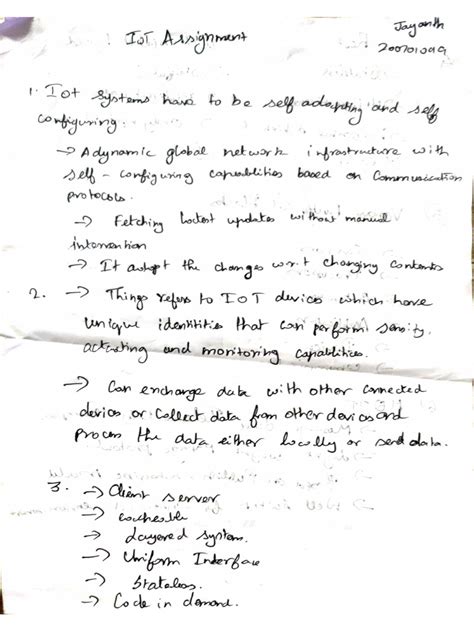 Jayanth
IoT Assignment
200701099
1. Iot systems have to be self adapting and self
configuring.
→ A dynamic global network infrastructure with
self-configuring capabilities based on Communication
protocols.
→ Fetching latest updates without manual
intervention
→ It adapt the changes w.r.t changing contents
2. → Things refers to IOT devices which have
unique identitities that can perform sensity,
actuating and monitoring capabilities.
→ Can exchange data with other connected
devices or Collect data from other devices and
process the data either locally or send data.
3. → Client server
→ cacheable
→ Layered system.
→ Uniform Interface
→ Stateless.
→ Code in demand.